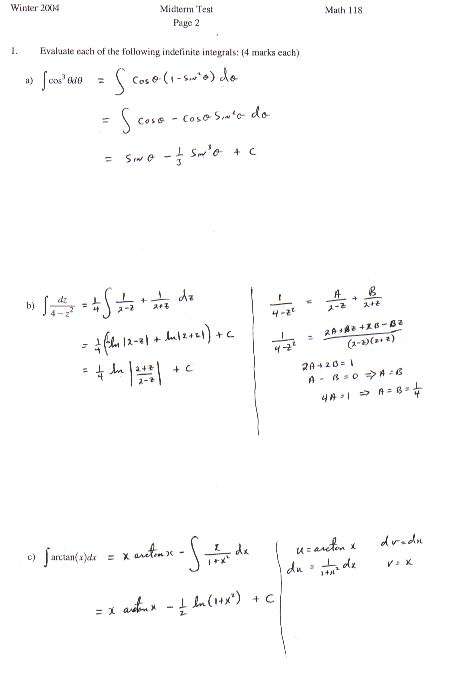 Winter 2004 Midterm Test Math 118
Page 2
1. Evaluate each of the following indefinite integrals: (4 marks each)
a) ∫cos³θdθ = ∫ cosθ(1-sin²θ) dθ
= ∫ cosθ - cosθ sin²θ dθ
= sinθ - 1/3 sin³θ + C
b) ∫ dz/(4-z²) = 1/4 ∫ 1/(2-z) + 1/(2+z) dz
= 1/4 (-ln|2-z| + ln|2+z|) + C
= 1/4 ln |(2+z)/(2-z)| + C
1/(4-z²) = A/(2-z) + B/(2+z)
1/(4-z²) = (2A+Az+2B-Bz)/((2-z)(2+z))
2A+2B=1
A-B=0 ⇒ A=B
4A=1 ⇒ A=B=1/4
c) ∫arctan(x)dx = x arctan x - ∫ x/(1+x²) dx
= x arctan x - 1/2 ln(1+x²) + C
u=arctan x dv=dx
du = 1/(1+x²) dx v=x